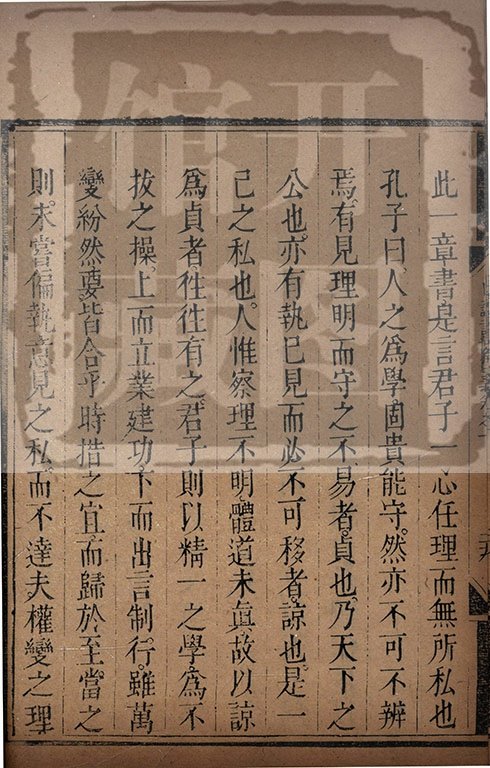 此一章書是言君子一心任理而無所私也
孔子曰人之爲學固貴能守然亦不可不辨
焉有見理明而守之不易者貞也乃天下之
公也亦有執己見而必不可移者諒也是一
己之私也人惟察理不明體道未眞故以諒
爲貞者徃徃有之君子則以精一之學爲不
拔之操上而立業建功下而出言制行雖萬
變紛然要皆合乎時措之宜而歸於至當之
則未嘗偏執意見之私而不達夫權變之理